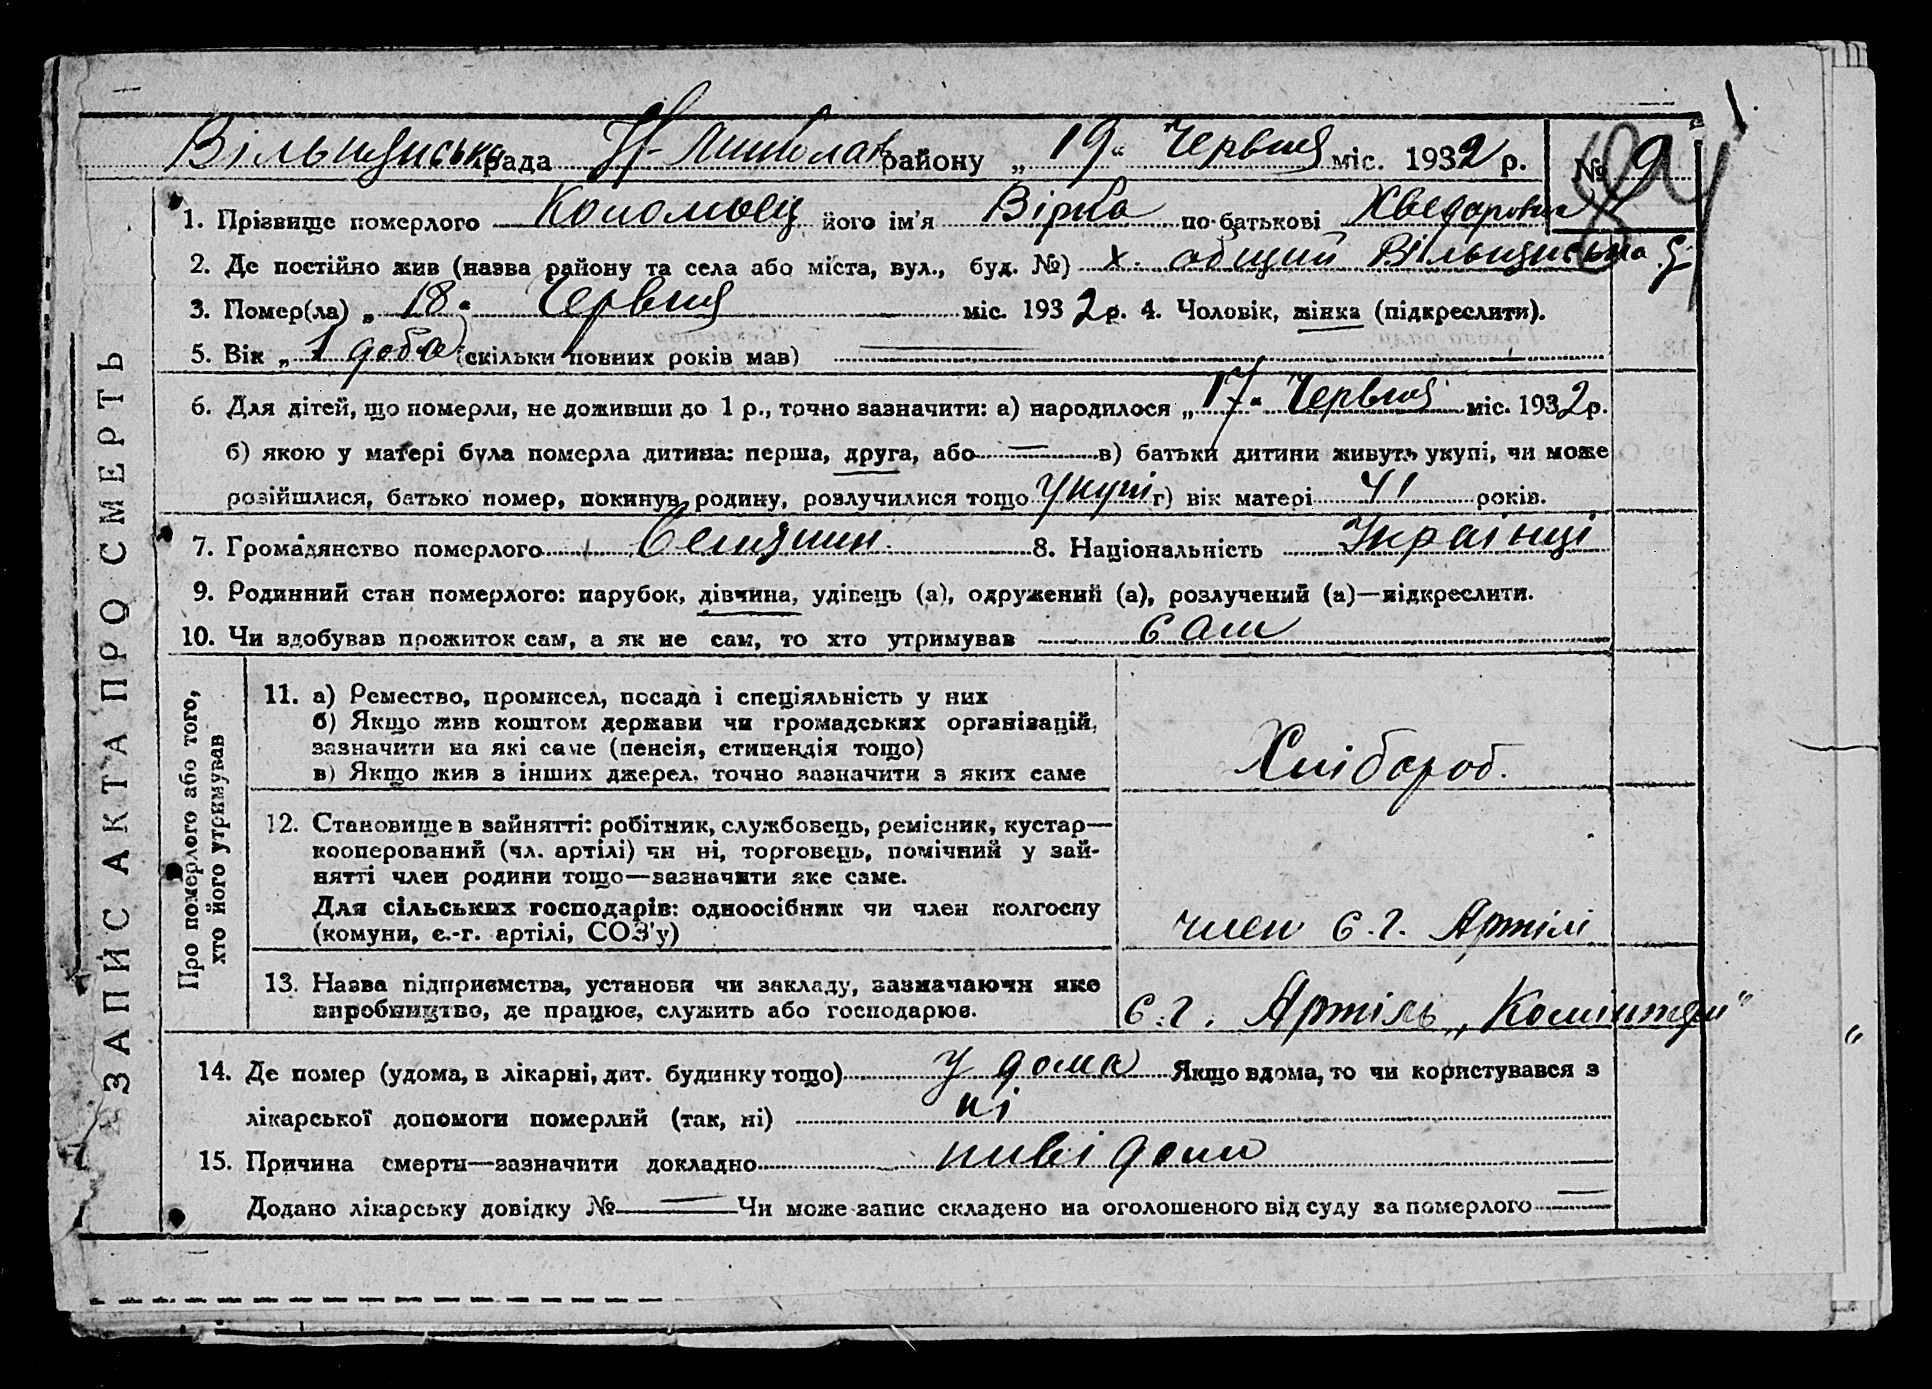 Вільшанська рада Н-Миколаї району „ 19 “ Червня міс. 1932 р. № 9
1. Прізвище померлого Коломыец його ім'я Вірка по-батькові Хведоровна
2. Де постійно жив (назва району та села або міста, вул., буд. №) х. общий
3. Помер(ла) „ 18 “ Червня міс. 1932 р. 4. Чоловік, жінка (підкреслити).
5. Вік „ 1 доба (скільки повних років мав) —
6. Для дітей, що померли, не доживши до 1 р., точно зазначити: а) народилося „ 17 “ Червня міс. 1932 р.
б) якою у матері була померла дитина: перша, друга, або — в) батьки дитини живуть укупі, чи може
розійшлися, батько помер, покинув родину, розлучилися тощо укупі г) вік матері 41 років.
7. Громадянство померлого Селянин 8. Національність Українці
9. Родинний стан померлого: парубок, дівчина, удівець (а), одружений (а), розлучений (а)—підкреслити.
10. Чи здобував прожиток сам, а як не сам, то хто утримував сам
ЗАПИС АКТА ПРО СМЕРТЬ
Про померлого або того,
хто його утримував
11. а) Ремество, промисел, посада і спеціяльність у них
б) Якщо жив коштом держави чи громадських організацій,
зазначити на які саме (пенсія, стипендія тощо)
в) Якщо жив з інших джерел, точно зазначити з яких саме
Хлібороб.
12. Становище в зайнятті: робітник, службовець, ремісник, кустар—
кооперований (чл. артілі) чи ні, торговець, помічний у зай-
нятті член родини тощо—зазначити яке саме.
Для сільських господарів: одноосібник чи член колгоспу
(комуни, с.-г. артілі, СОЗ'у)
член с. г. Артілі
13. Назва підприємства, установи чи закладу, зазначаючи яке
виробництво, де працює, служить або господарює.
с. г. Артіль „Комінтерн“
14. Де помер (удома, в лікарні, дит. будинку тощо) у дома Якщо вдома, то чи користувався з
лікарської допомоги померлий (так, ні) ні
15. Причина смерти—зазначити докладно
Додано лікарську довідку № — Чи може запис складено на оголошеного від суду за померлого —